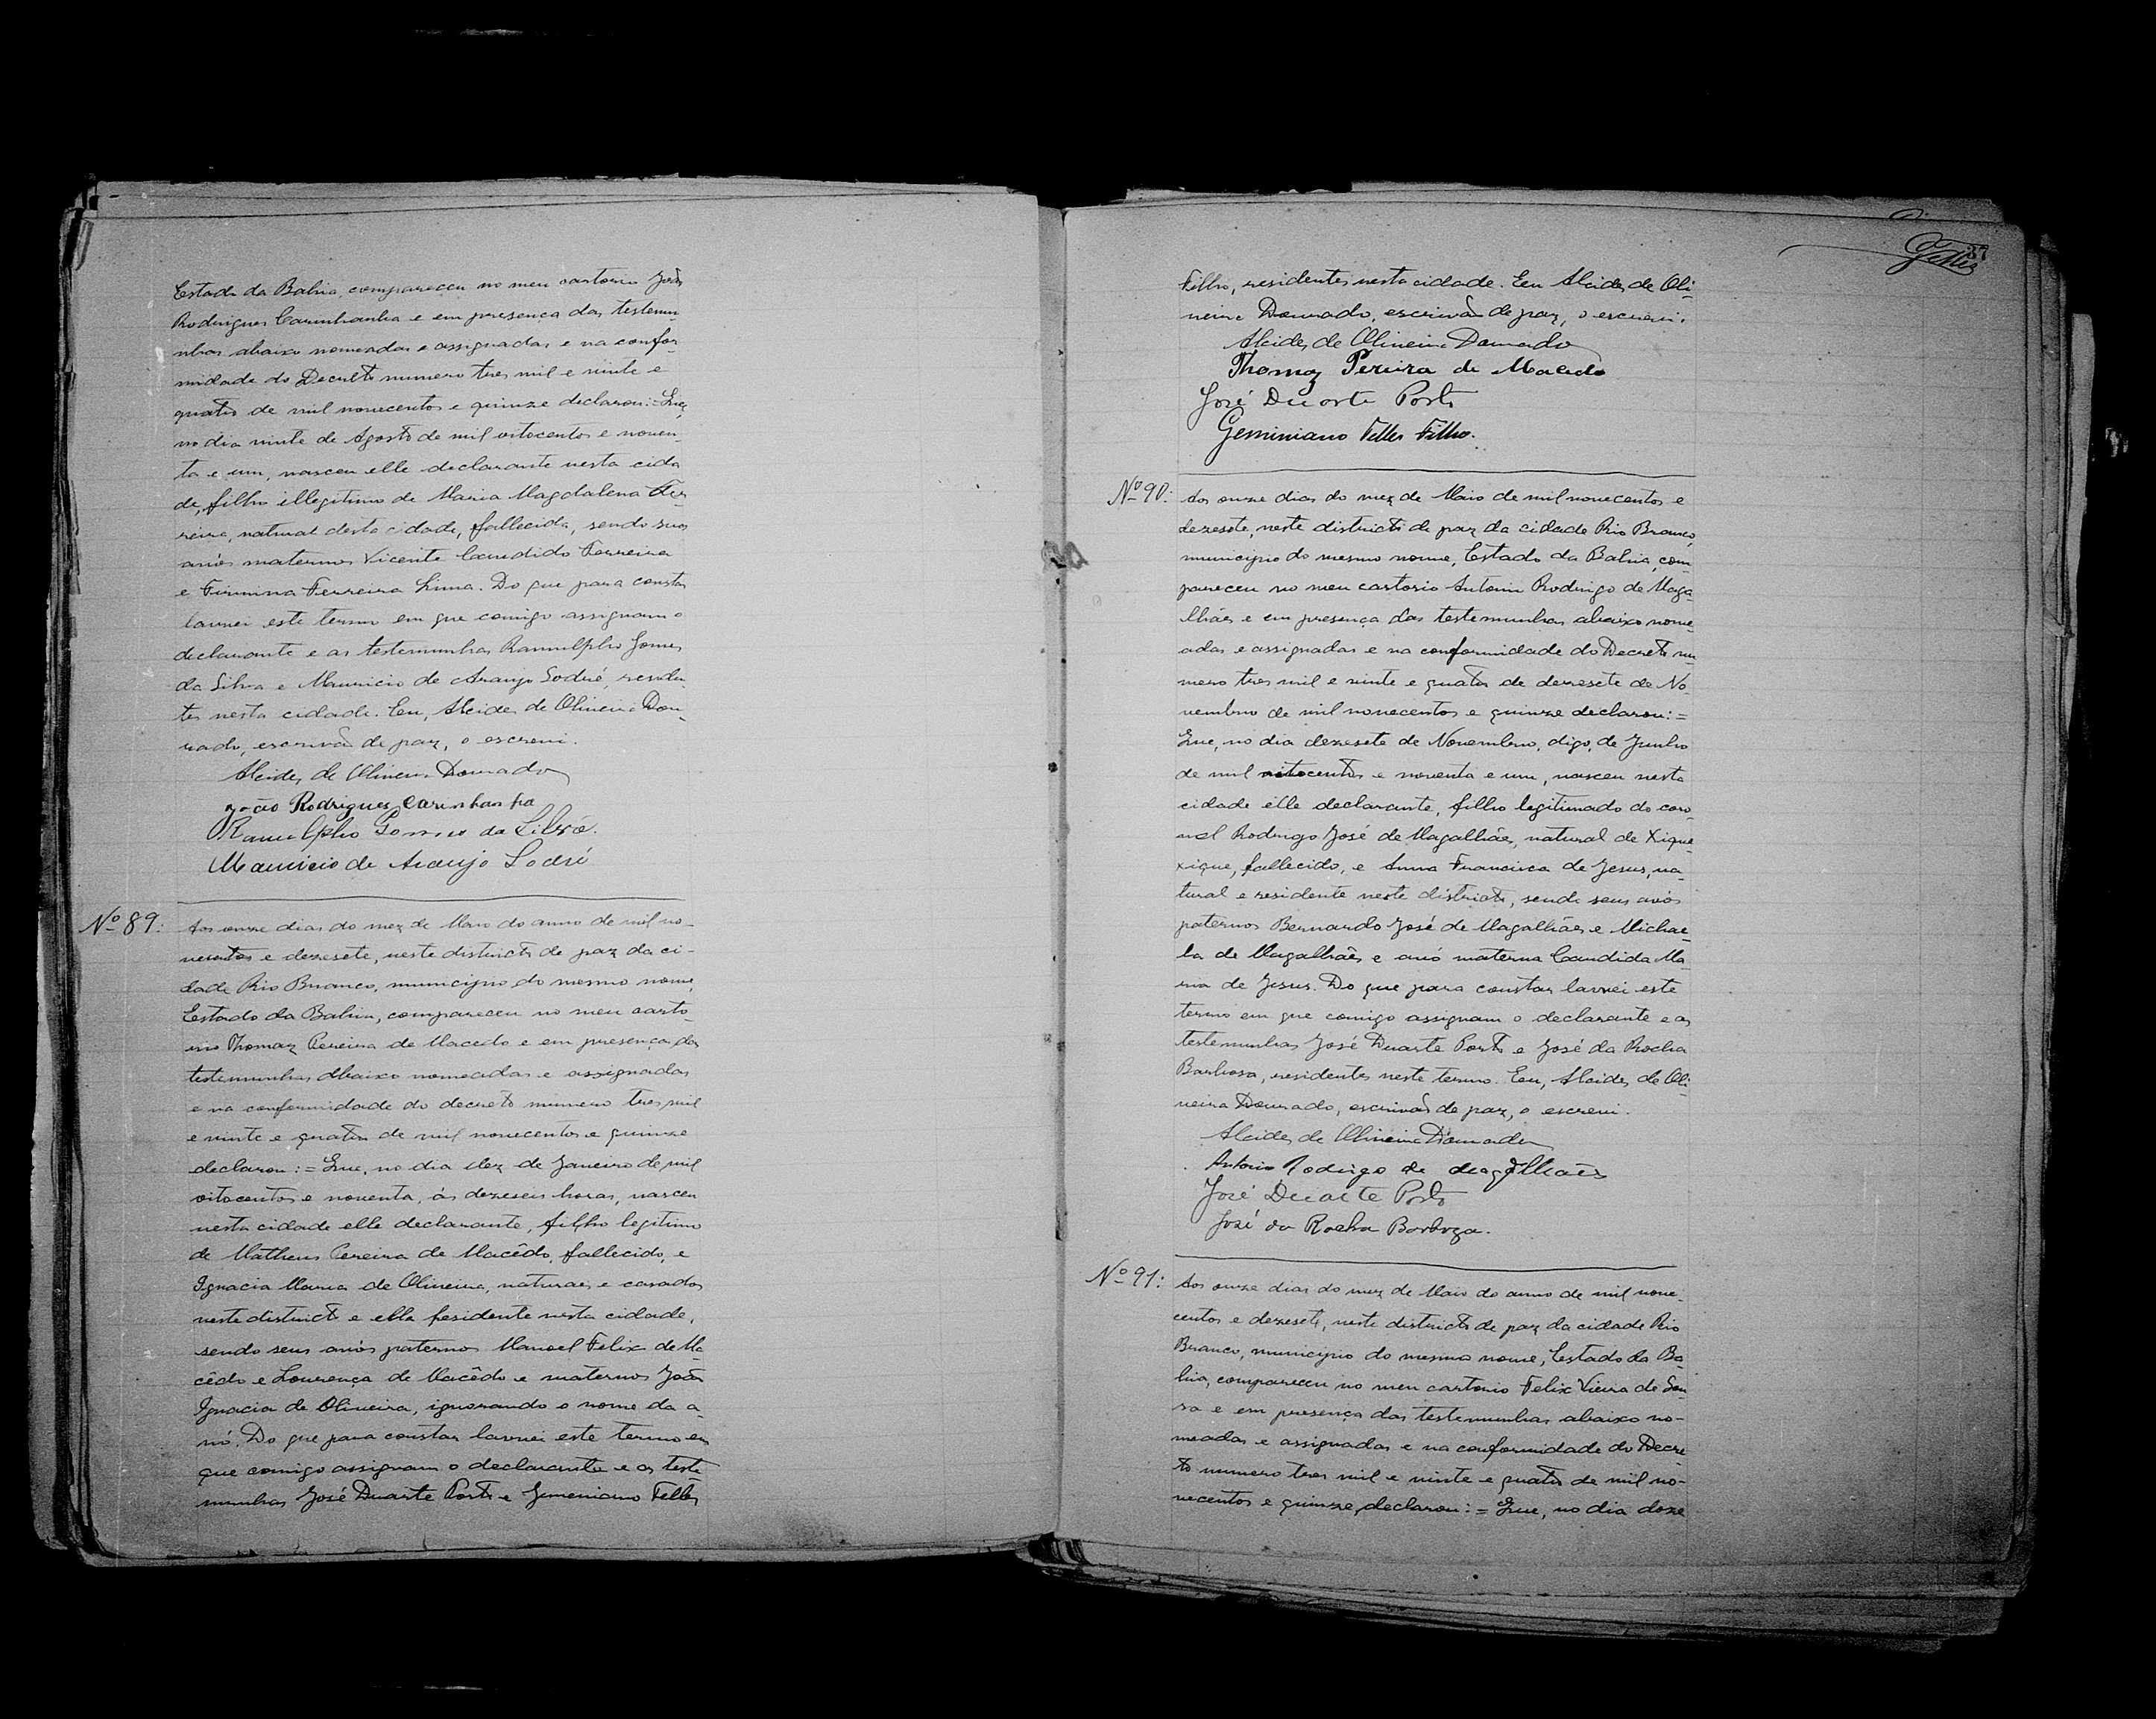 Estado da Bahia, compareceu no meu cartorio João
Rodrigues Carinhanha e em presença das testemu-
nhas abaixo nomeadas e assignadas e na confor-
midade do Decreto numero tres mil e vinte e
quatro de mil novecentos e quinze declarou: = Que,
no dia vinte de Agosto de mil oitocentos e noven-
ta e um, nasceu elle declarante nesta cida
de, filho illegitimo de Maria Magdalena Fer
reira, natural desta cidade, fallecida, sendo seus
avós maternos Vicente Candido Ferreira
e Firmina Ferreira Lima. Do que para constar
lavrei este termo em que comigo assignam o
declarante e as testemunhas Ramulpho Gomes
da Silva e Mauricio de Araujo Sodré, residen
tes nesta cidade. Eu, Alcides de Oliveira Dou-
rado, escrivão de paz, o escrevi.
Alcides de Oliveira Dourado
João Rodrigues Carinhanha
Ramulpho Gomes da Silva.
Mauricio de Araujo Sodré
Nº 89: Aos onze dias do mez de Maio do anno de mil no-
vecentos e dezesete, neste districto de paz da ci-
dade Rio Branco, municipio do mesmo nome,
Estado da Bahia, compareceu no meu carto-
rio Thomaz Pereira de Macedo e em presença das
testemunhas abaixo nomeadas e assignadas
e na conformidade do decreto numero tres mil
e vinte e quatro de mil novecentos e quinze
declarou: = Que, no dia dez de Janeiro de mil
oitocentos e noventa, ás dezeseis horas, nasceu
nesta cidade elle declarante, filho legitimo
de Matheus Pereira de Macêdo, fallecido, e
Ignacia Maria de Oliveira, naturaes e casados
neste districto e ella residente nesta cidade,
sendo seus avós paternos Manoel Felix de Ma
cêdo e Lourença de Macêdo e maternos João
Ignacio de Oliveira, ignorando o nome da a-
vó. Do que para constar lavrei este termo em
que comigo assignam o declarante e as teste
munhas José Duarte Porto e Gemeniano Telles
37
Telles
Filho, residentes nesta cidade. Eu Alcides de Oli-
veira Dourado, escrivão de paz, o escrevi.
Alcides de Oliveira Dourado
Thomaz Pereira de Macedo
José Duarte Porto
Geminiano Telles Filho.
Nº 90: Aos onze dias do mez de Maio de mil novecentos e
dezesete, neste districto de paz da cidade Rio Branco,
municipio do mesmo nome, Estado da Bahia, com
pareceu no meu cartorio Antonio Rodrigo de Maga
lhães e em presença das testemunhas abaixo nome
adas e assignadas e na conformidade do Decreto nu
mero tres mil e vinte e quatro de dezesete de No
vembro de mil novecentos e quinze declarou: =
Que, no dia dezesete de Novembro, digo, de Junho
de mil oitocentos e noventa e um, nasceu nesta
cidade elle declarante, filho legitimado do coro
nel Rodrigo José de Magalhães, natural de Xique
xique, fallecido, e Anna Francisca de Jesus, na-
tural e residente neste districto, sendo seus avós
paternos Bernardo José de Magalhães e Michae-
la de Magalhães e avó materna Candida Ma-
ria de Jesus. Do que para constar lavrei este
termo em que comigo assignam o declarante e as
testemunhas José Duarte Porto e José da Rocha
Barbosa, residentes neste termo. Eu, Alcides de Oli
veira Dourado, escrivão de paz, o escrevi.
Alcides de Oliveira Dourado
Antonio Rodrigo de Magalhães
José Duarte Porto
José da Rocha Barboza.
Nº 91: Aos onze dias do mez de Maio do anno de mil nove-
centos e dezesete, neste districto de paz da cidade Rio
Branco, municipio do mesmo nome, Estado da Ba
hia, compareceu no meu cartorio Felix Vieira de Sou
za e em presença das testemunhas abaixo no-
meadas e assignadas e na conformidade do Decre
to numero tres mil e vinte e quatro de mil no-
vecentos e quinze, declarou: = Que, no dia doze